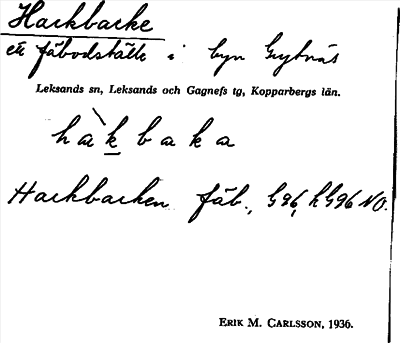 Hackbacke
ett fäbodställe i byn Grytnäs
Leksands sn, Leksands och Gagnefs tg, Kopparbergs län.
hàk̲baka
Hackbacken fäb., G96, h G96 NO.
ERIK M. CARLSSON, 1936.